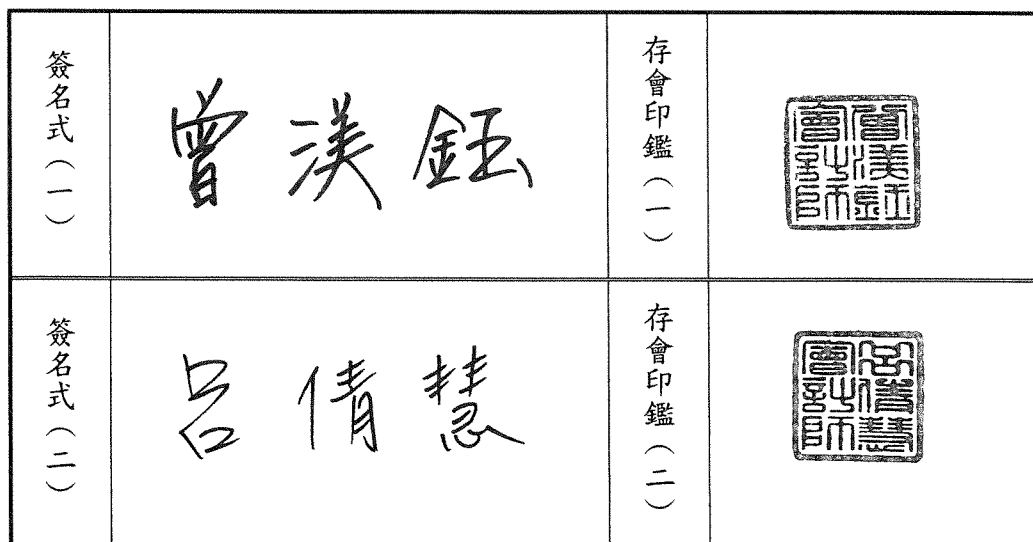 簽名式（一）
曾渼鈺
存會印鑑（一）
曾渼鈺會計師
簽名式（二）
呂倩慧
存會印鑑（二）
呂倩慧會計師